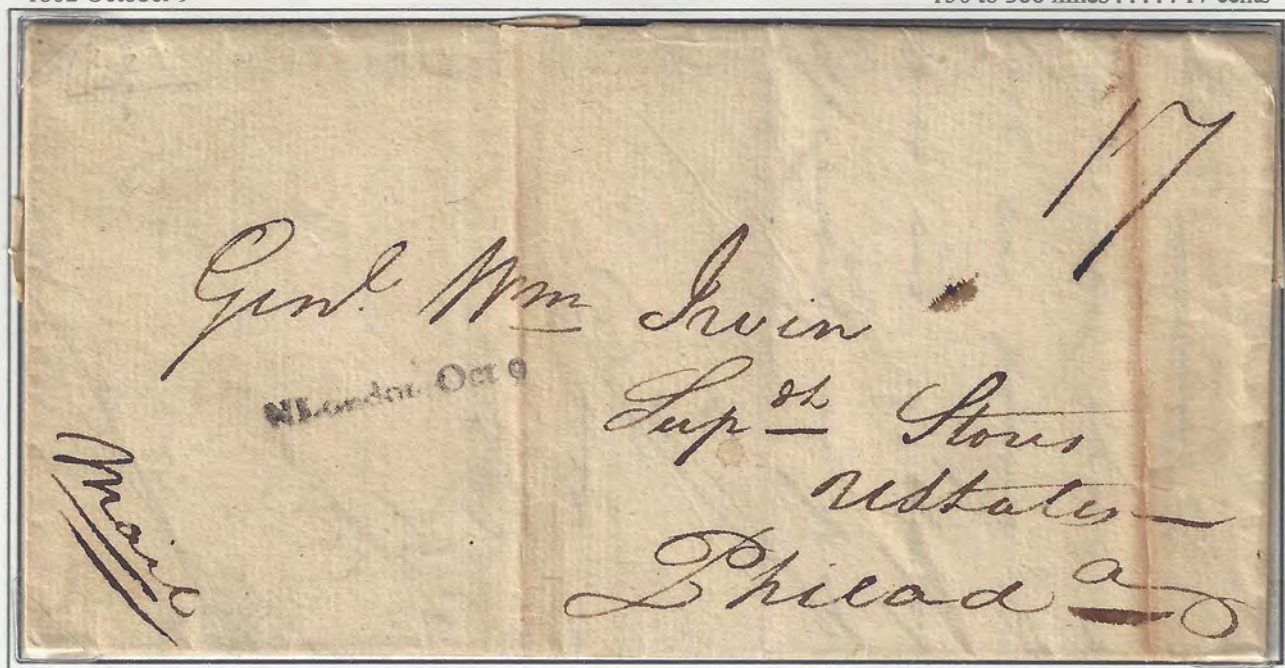 17
Genl. Wm Irvin
NLondon Oct 9
Supdt Stores
UStates
Mail
Philada